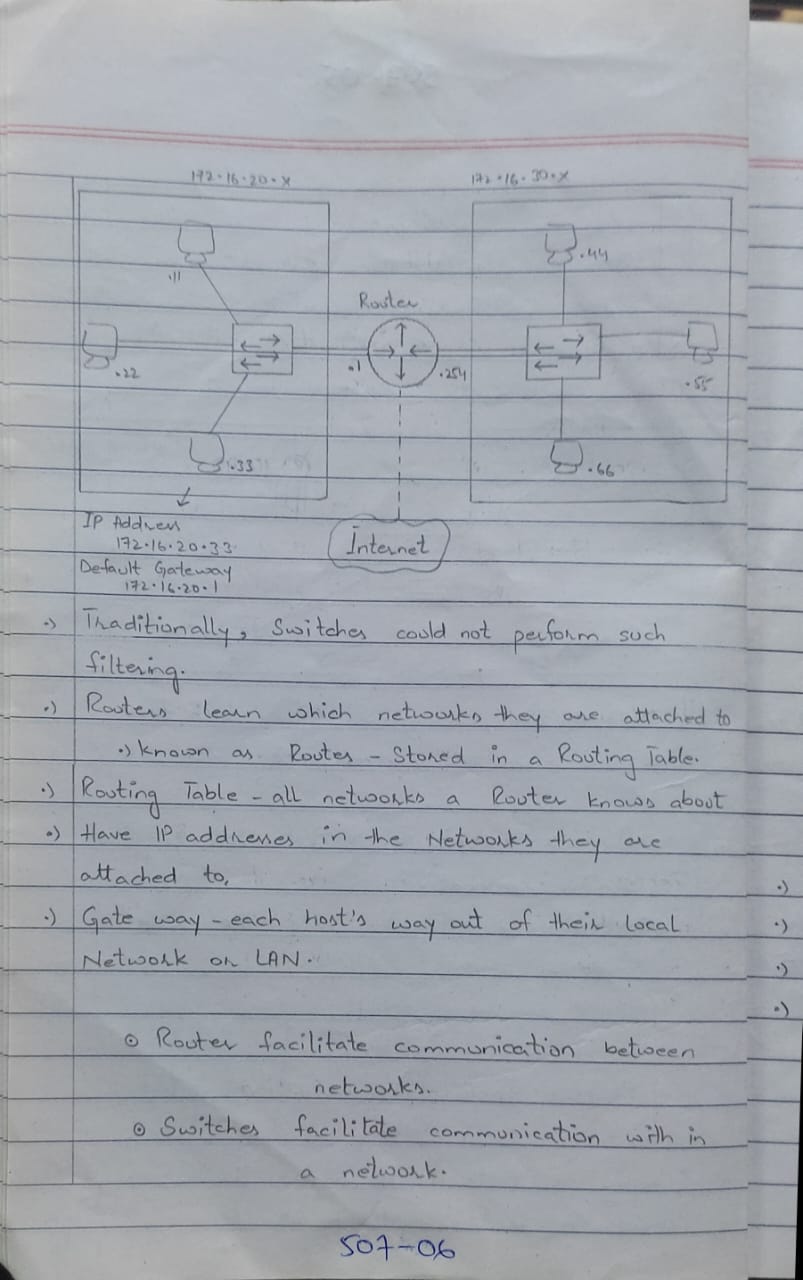 172.16.20.X
172.16.30.X
.11
.44
Router
.22
.1
.254
.55
.33
.66
IP Address
172.16.20.33
Internet
Default Gateway
172.16.20.1
.) Traditionally, Switches could not perform such
filtering.
.) Routers learn which networks they are attached to
.) known as Routes - Stored in a Routing Table.
.) Routing Table - all networks a Router knows about
.) Have IP addresses in the Networks they are
attached to,
.)
.) Gate way - each host's way out of their local
.)
Network or LAN.
.)
.)
⊙ Router facilitate communication between
networks.
⊙ Switches facilitate communication with in
a network.
507-06